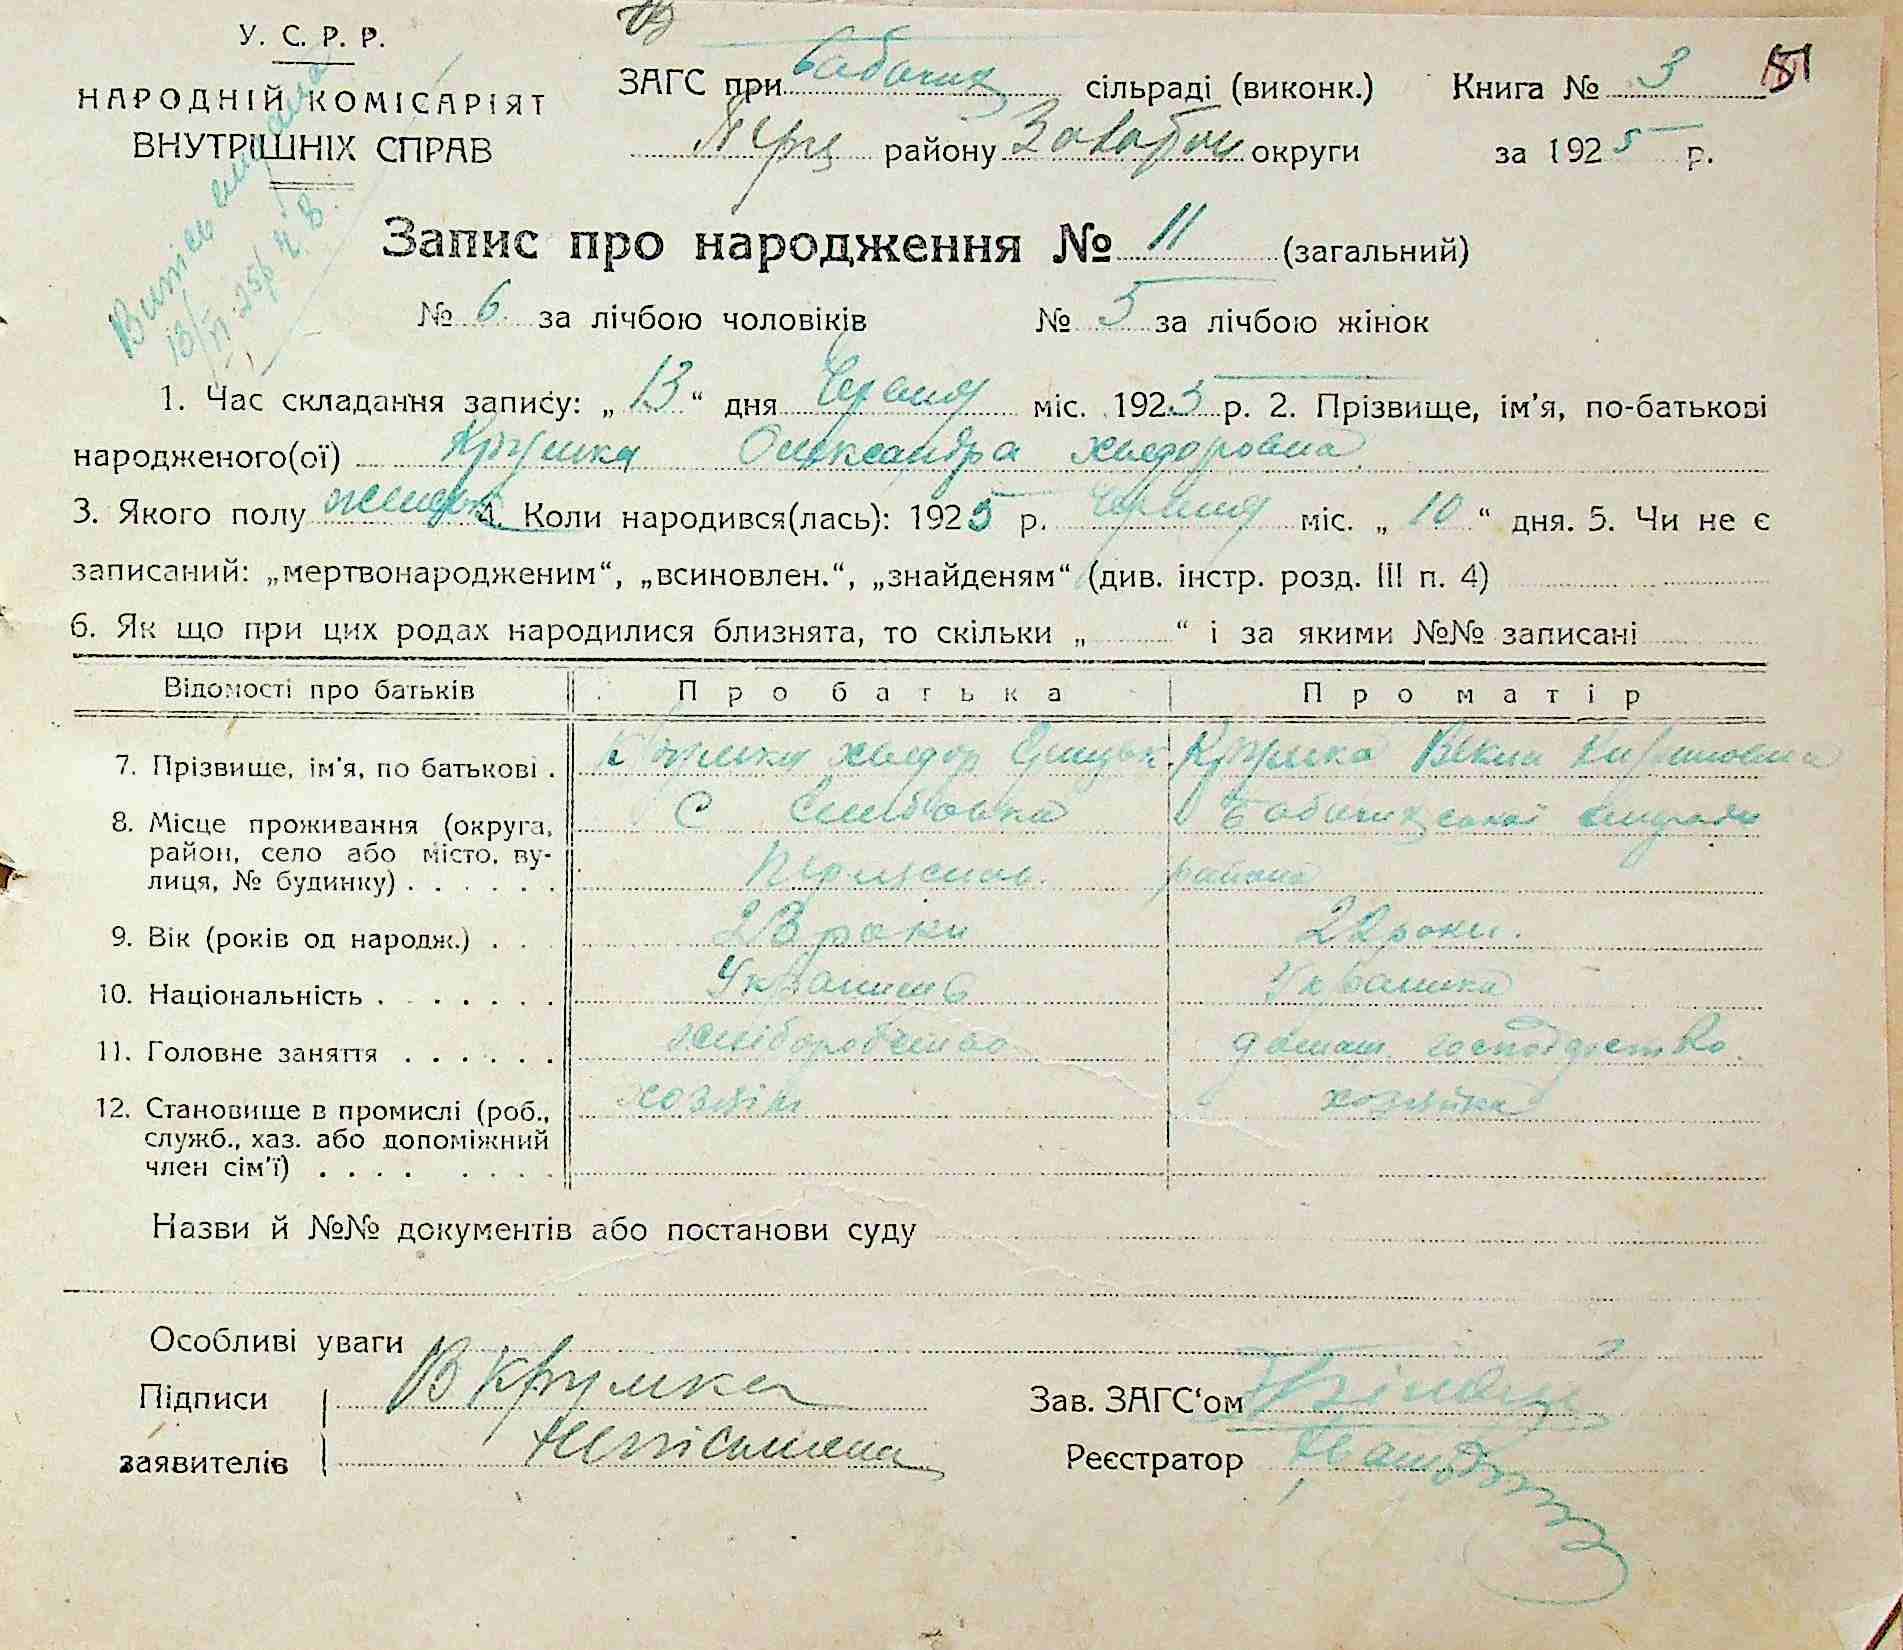 У. С. Р. Р.
НАРОДНІЙ КОМІСАРІЯТ
ВНУТРІШНІХ СПРАВ
ЗАГС при сільраді (виконк.) Книга № 3 51
району округи за 1925 р.
Запис про народження № 11 (загальний)
№ 6 за лічбою чоловіків № 5 за лічбою жінок
1. Час складання запису: „ 13 “ дня Червня міс. 1925 р. 2. Прізвище, ім'я, по-батькові
народженого(ої) Крумка Олександра Хведоровна
3. Якого полу 4. Коли народився(лась): 1925 р. Червня міс. „ 10 “ дня. 5. Чи не є
записаний: „мертвонародженим“, „всиновлен.“, „знайденям“ (див. інстр. розд. III п. 4)
6. Як що при цих родах народилися близнята, то скільки „ “ і за якими №№ записані
Відомості про батьків Про батька Про матір
7. Прізвище, ім'я, по батькові . Крумка Хведор Крумка
8. Місце проживання (округа, район, село або місто, вулиця, № будинку) . . . . . . С
района
9. Вік (років од народж.) . . 23 роки 22 роки.
10. Національність . . . . . . . Українець Українка
11. Головне заняття . . . . . . хліборобство домаш. господарство
12. Становище в промислі (роб., служб., хаз. або допоміжний член сім'ї) . . . . . . . . хозяїн хозяйка
Назви й №№ документів або постанови суду
Особливі уваги
Підписи В Крумка Зав. ЗАГС'ом
заявителів Неписьмена Реєстратор